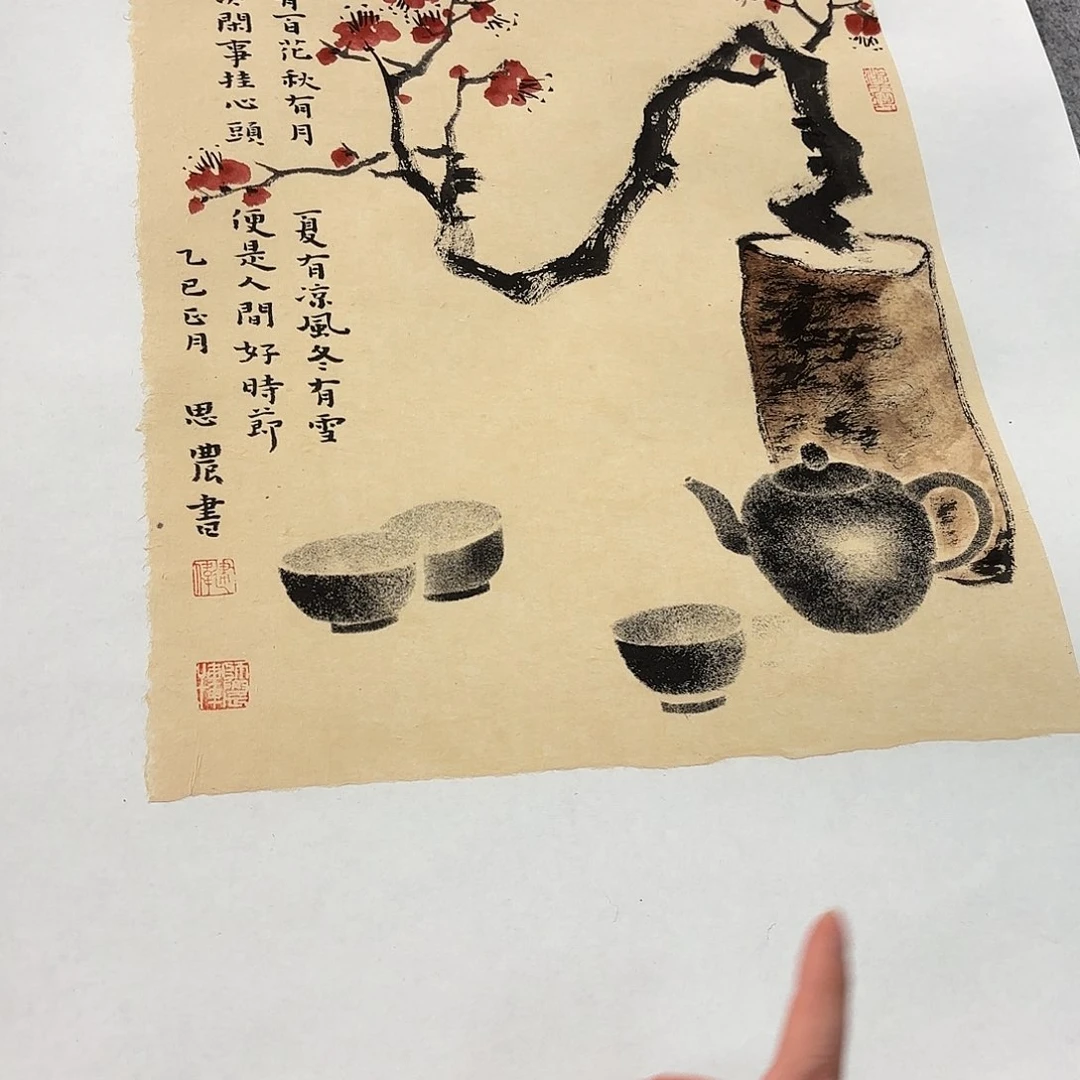 有百花秋有月
夏有凉風冬有雪
閑事挂心頭
便是人間好時節
乙巳正月 思農書